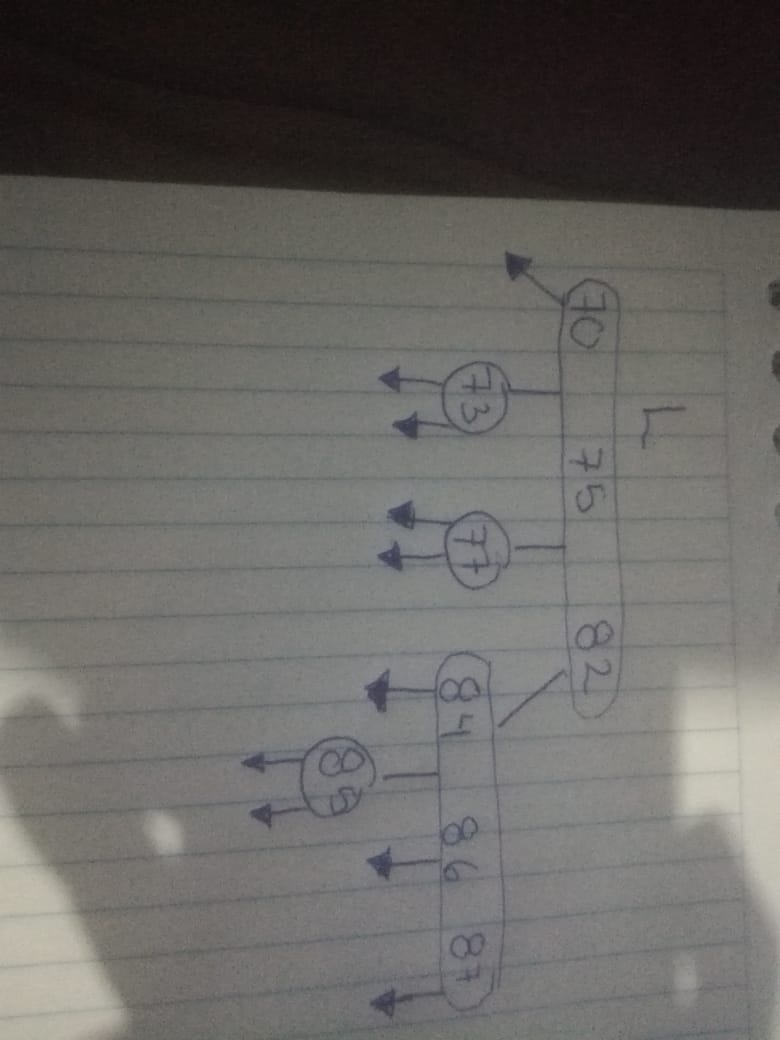 L
70 75 82
73 77 84 86 87
85